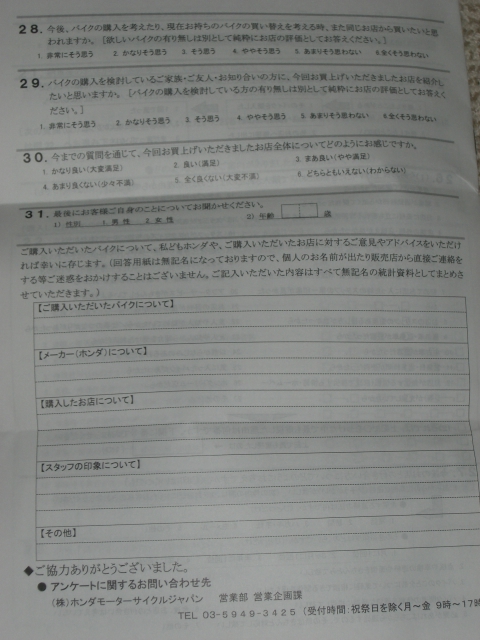 28. 今後、バイクの購入を考えたり、現在お持ちのバイクの買い替えを考える時、また同じお店から買いたいと思
われますか。[欲しいバイクの有り無しは別として純粋にお店の評価としてお答えください。]
1. 非常にそう思う 2. かなりそう思う 3. そう思う 4. ややそう思う 5. あまりそう思わない 6.全くそう思わない
29. バイクの購入を検討しているご家族・ご友人・お知り合いの方に、今回お買上げいただきましたお店を紹介し
たいと思いますか。[バイクの購入を検討している方の有り無しは別として純粋にお店の評価としてお答えく
ださい。]
1. 非常にそう思う 2. かなりそう思う 3. そう思う 4. ややそう思う 5. あまりそう思わない 6.全くそう思わない
30. 今までの質問を通じて、今回お買上げいただきましたお店全体についてどのようにお感じですか。
1. かなり良い(大変満足) 2. 良い(満足) 3. まあ良い(やや満足)
4. あまり良くない(少々不満) 5. 全く良くない(大変不満) 6. どちらともいえない(わからない)
31. 最後にお客様ご自身のことについてお聞かせください。
1) 性別 1. 男 性 2. 女 性 2) 年齢 歳
ご購入いただいたバイクについて、私どもホンダや、ご購入いただいたお店に対するご意見やアドバイスをいただけ
れば幸いに存じます。(回答用紙は無記名になっておりますので、個人のお名前が出たり販売店から直接ご連絡を
する等ご迷惑をおかけすることはございません。ご記入いただいた内容はすべて無記名の統計資料としてまとめさ
せていただきます。)
【ご購入いただいたバイクについて】
【メーカー(ホンダ)について】
【購入したお店について】
【スタッフの印象について】
【その他】
◆ご協力ありがとうございました。
● アンケートに関するお問い合わせ先
(株)ホンダモーターサイクルジャパン 営業部 営業企画課
TEL 03-5949-3425 (受付時間:祝祭日を除く月～金 9時～17時